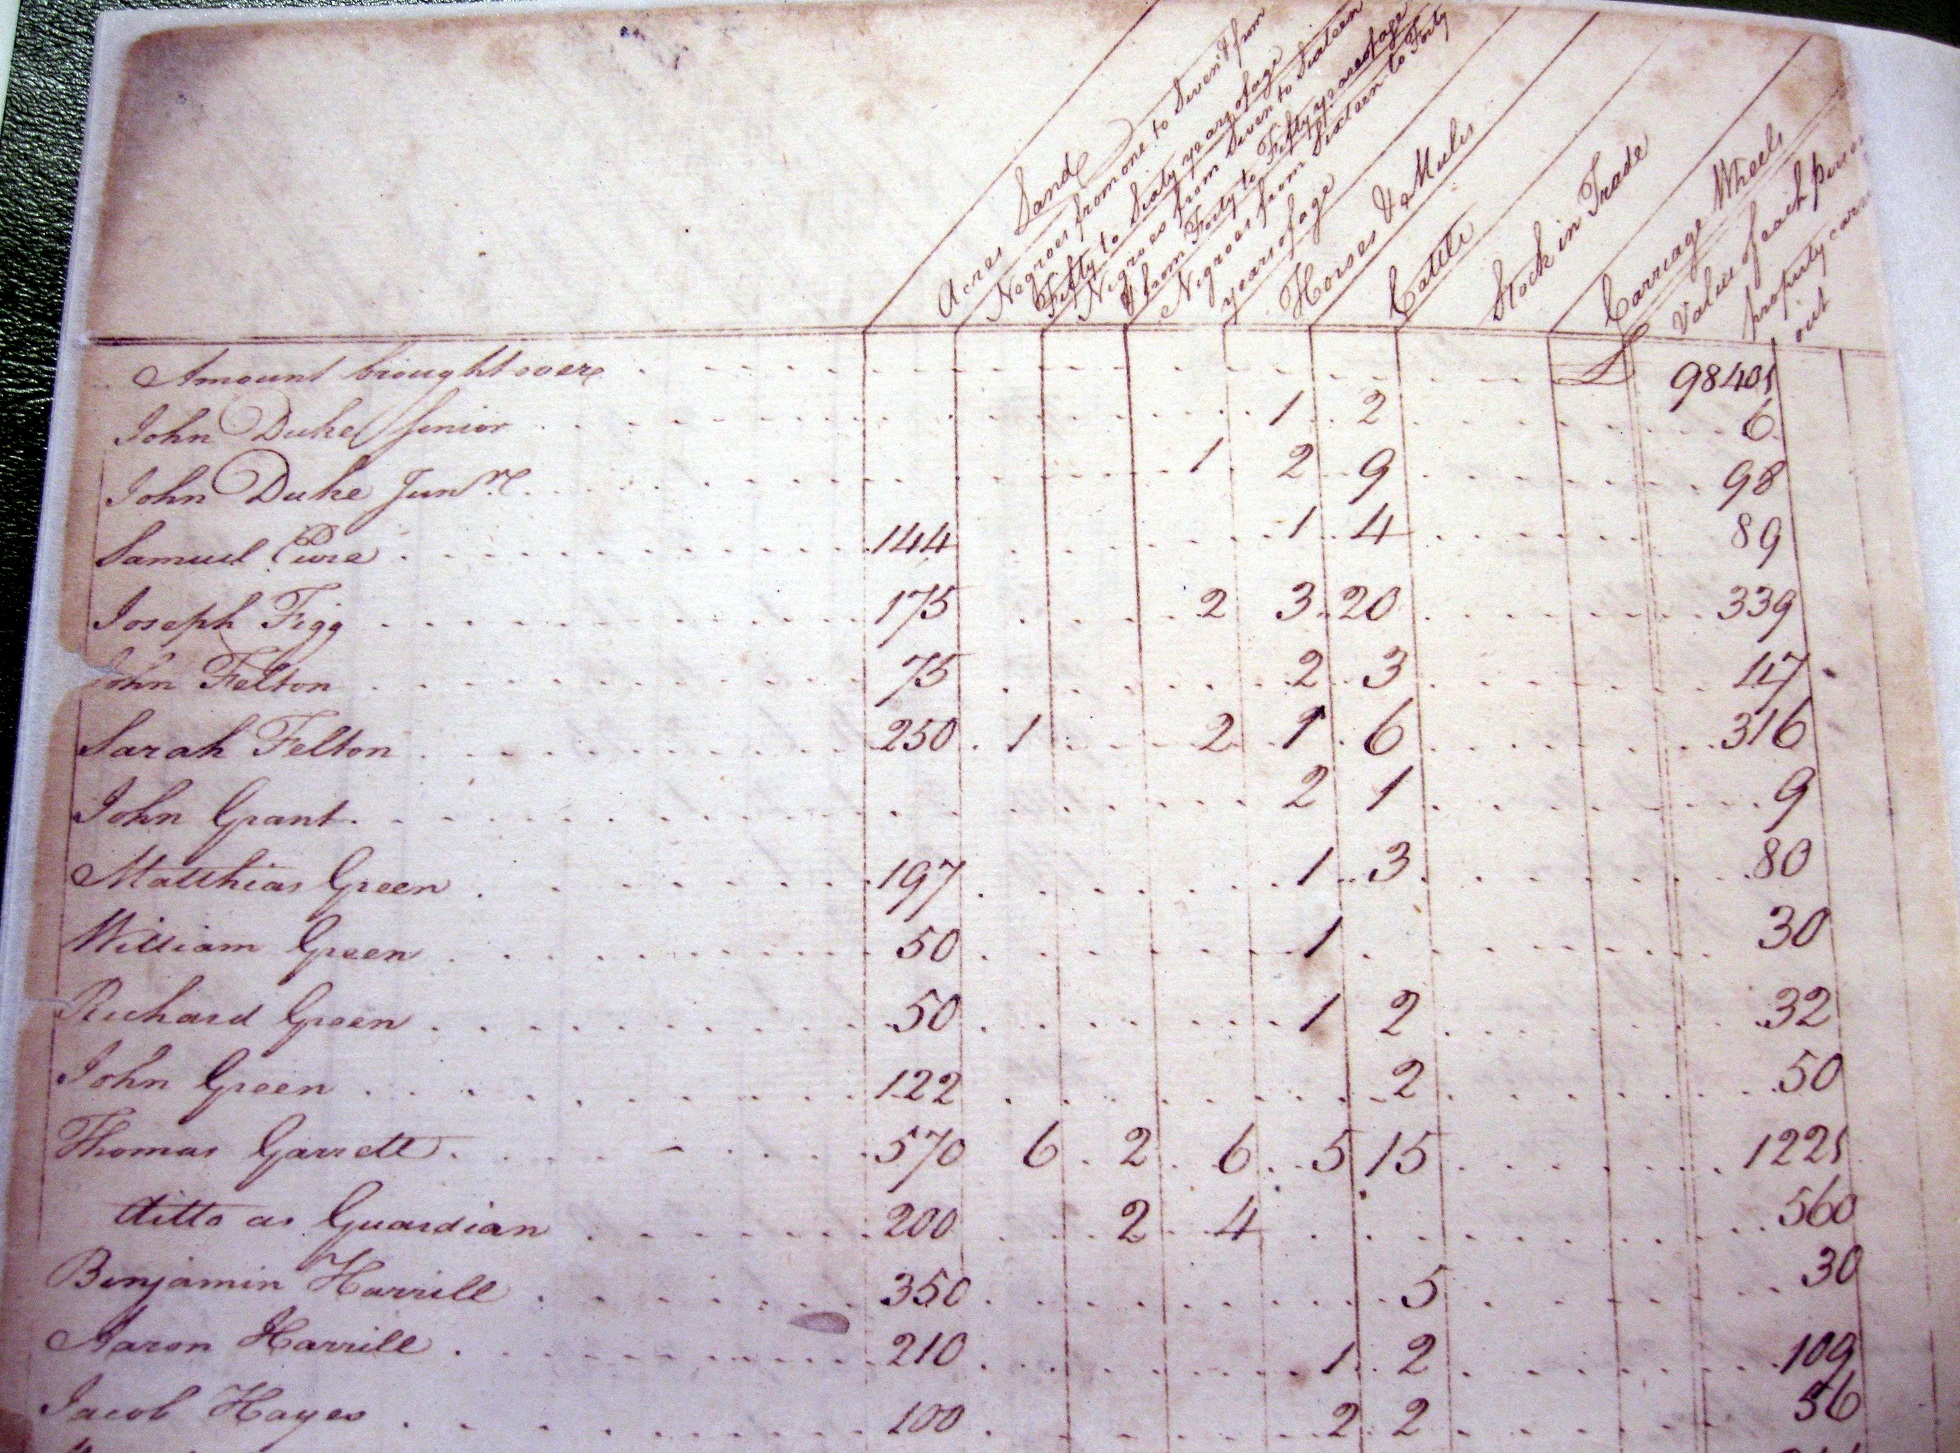 Acres Land
Negroes from one to Seven & from
Fifty to Sixty years of age
Negroes from Seven to Sixteen
& from Forty to Fifty years of age
Negroes from Sixteen to Forty
years of age
Horses & Mules
Cattle
Stock in Trade
Carriage Wheels
Value of each
property
out
Amount brought over 98401
John Duke Senior 1 2 6
John Duke Junr 1 2 9 98
Samuel 144 1 4 89
Joseph Figg 175 2 3 20 339
John Felton 75 2 3 117
Sarah Felton 250 1 2 1 6 316
John Grant 2 1 9
Matthias Green 197 1 3 80
William Green 50 1 30
Richard Green 50 1 2 32
John Green 122 2 50
Thomas Garrett 570 6 2 6 5 15 1221
ditto as Guardian 200 2 4 560
Benjamin Harrill 350 5 30
Aaron Harrill 210 1 2 109
Jacob Hayes 100 2 2 56